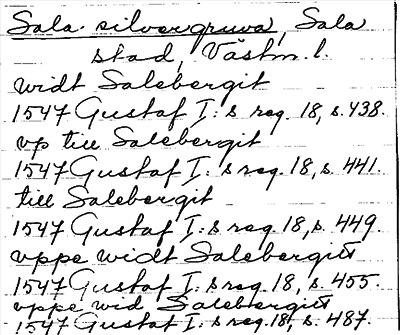 Sala silvergruva, Sala
stad, Västm. l.
widt Salebergit
1547 Gustaf I:s reg. 18, s. 438.
vp till Salebergit
1547 Gustaf I:s reg. 18, s. 441.
till Salebergit
1547 Gustaf I:s reg. 18, s. 449.
vppe widt Salebergitt
1547 Gustaf I:s reg. 18, s. 455.
vppe wid Salebergitt
1547 Gustaf I:s reg. 18, s. 487.